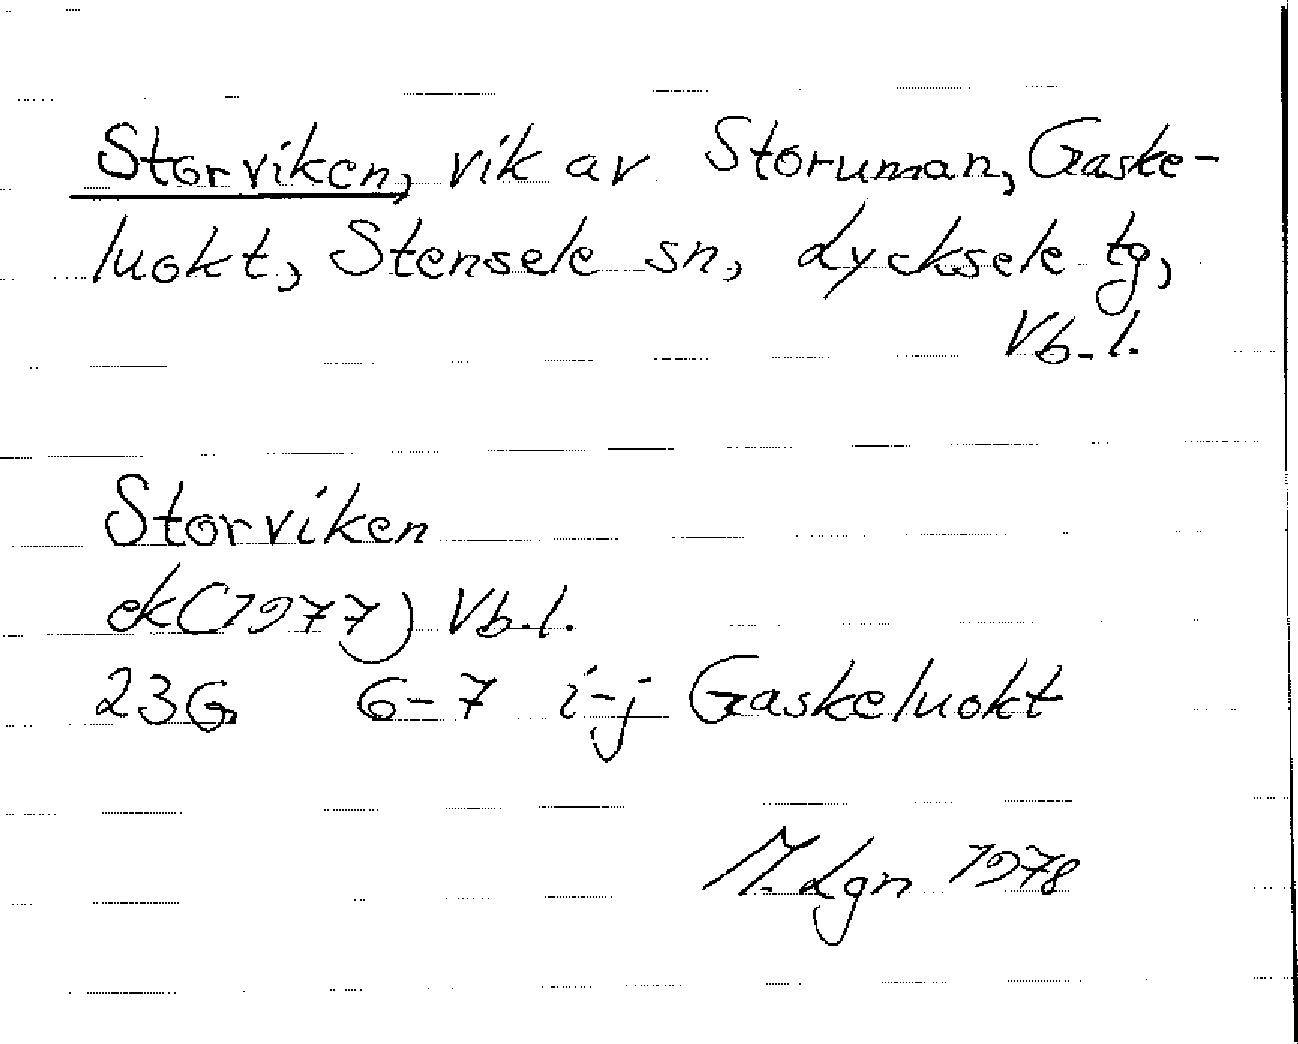 Storviken, vik av Storuman, Gaske-
luokt, Stensele sn, Lycksele tg,
Vb.l.
Storviken
ek(1977) Vb.l.
23G 6-7 i-j Gaskeluokt
M. Lgn 1978